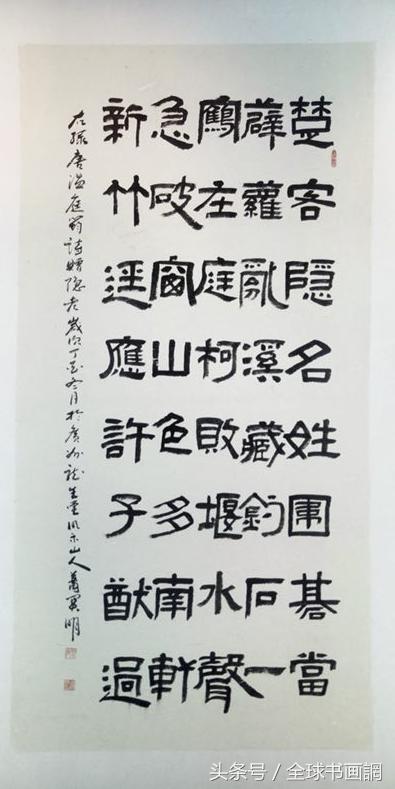 楚客隐名姓圍碁當
薜蘿亂溪藏釣石一
鶴在庭柯敗堰水聲
急破窗山色多南軒
新竹逕應許子猷過
右錄唐溫庭筠詩贈隐者歲次丁酉冬月於廣州龍生堂山人蕭明
头条号／全球书画調